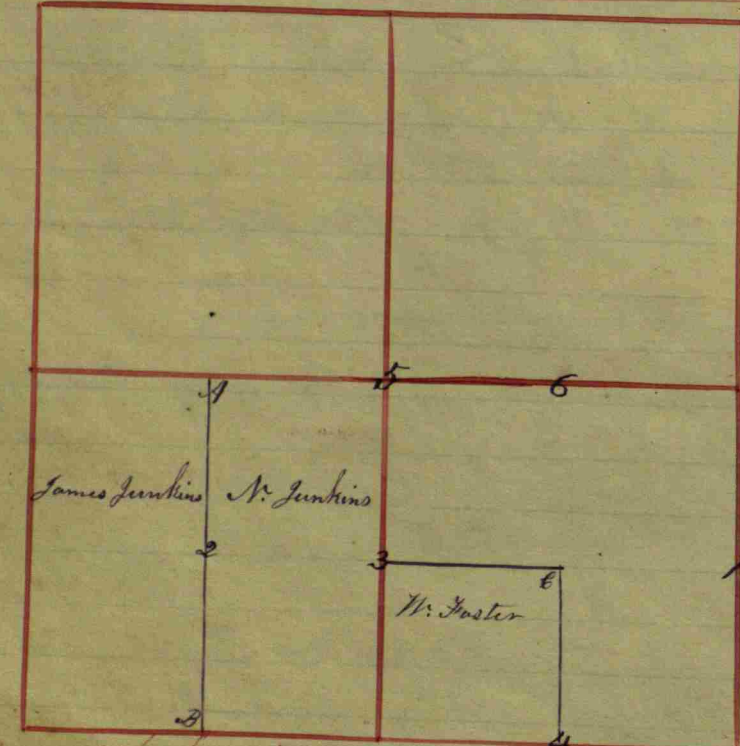 5
6
A
James Junkins
N. Junkins
2
3
1
C
W. Foster
B
4